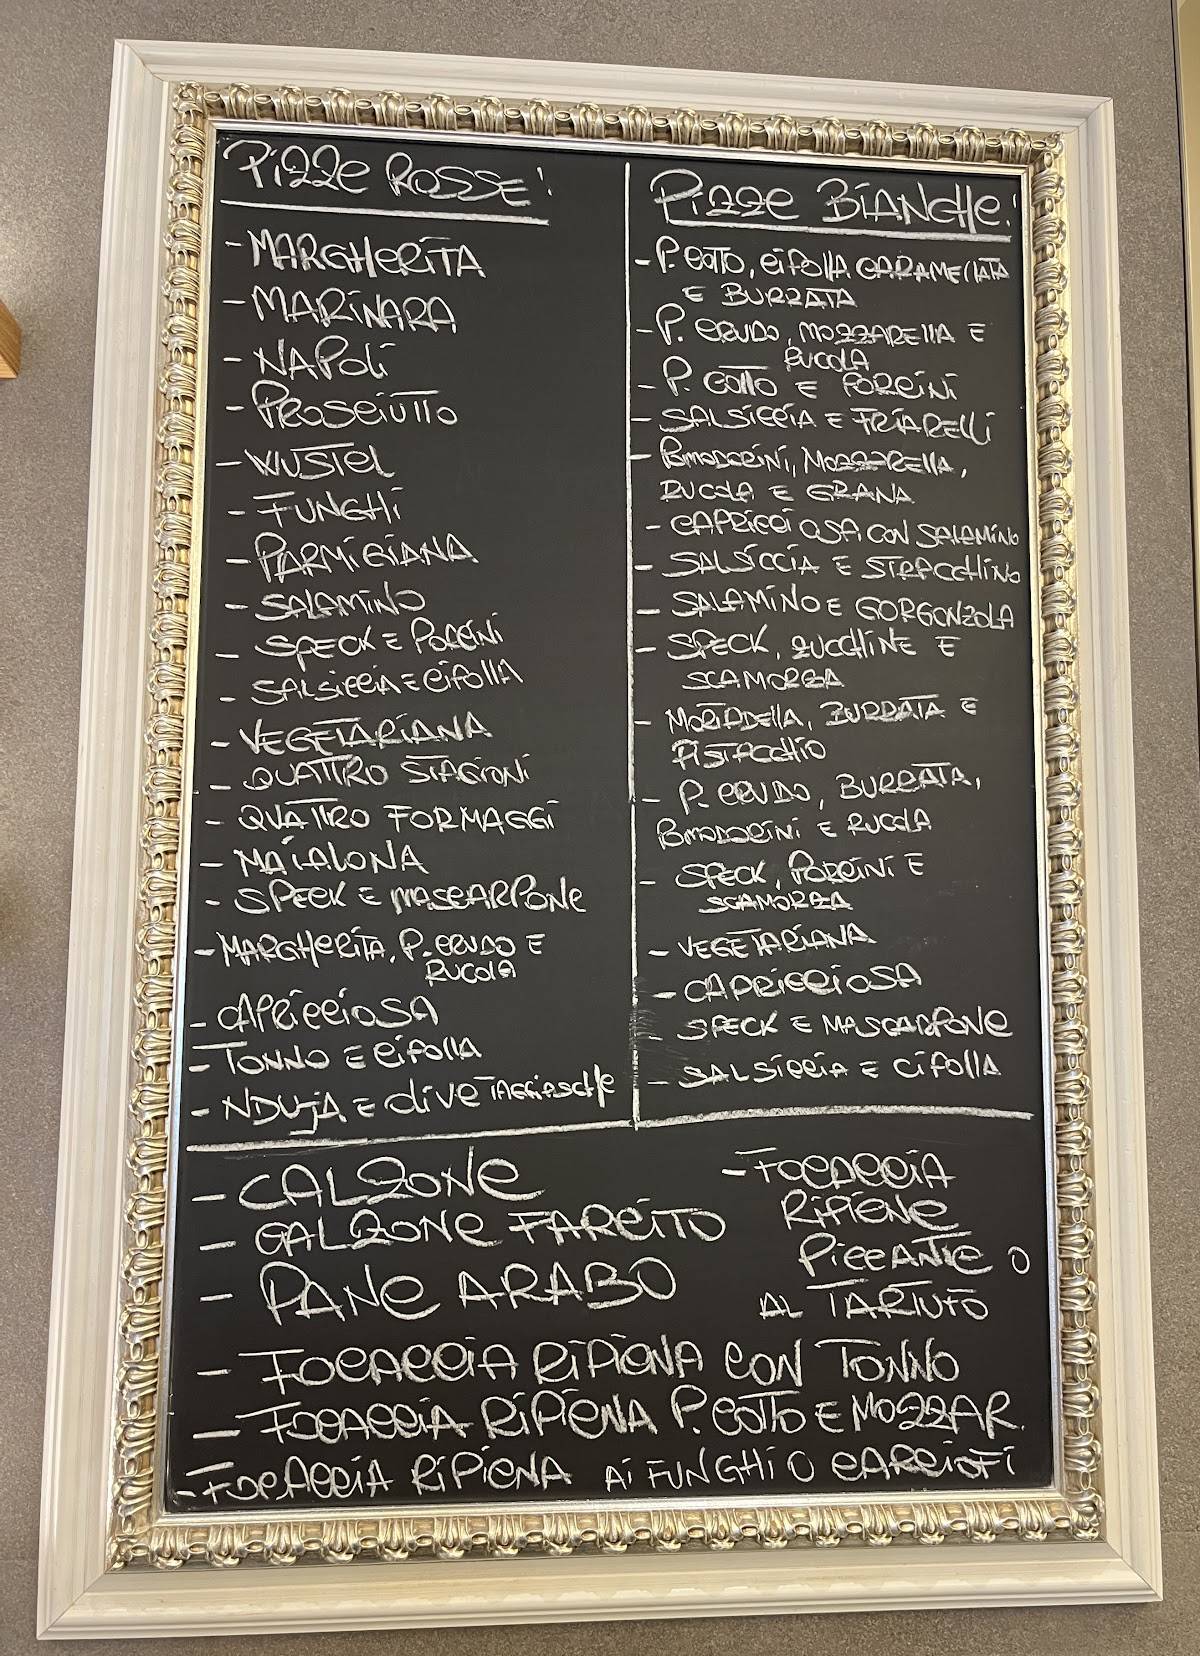 PIZZE ROSSE!
- MARGHERITA
- MARINARA
- NAPOLI
- PROSCIUTTO
- WUSTEL
- FUNGHI
- PARMIGIANA
- SALAMINO
- SPECK E PORCINI
- SALSICCIA E CIPOLLA
- VEGETARIANA
- QUATTRO STAGIONI
- QUATTRO FORMAGGI
- MAIALONA
- SPECK E MASCARPONE
- MARGHERITA, P. CRUDO E
RUCOLA
- CAPRICCIOSA
- TONNO E CIPOLLA
- NDUJA E OLIVE TAGGIASCHE
PIZZE BIANCHE!
- P. COTTO, CIPOLLA CARAMELLATA
E BURRATA
- P. CRUDO, MOZZARELLA E
RUCOLA
- P. COTTO E PORCINI
- SALSICCIA E FRIARELLI
- POMODORINI, MOZZARELLA,
RUCOLA E GRANA
- CAPRICCIOSA CON SALAMINO
- SALSICCIA E STRACCHINO
- SALAMINO E GORGONZOLA
- SPECK, ZUCCHINE E
SCAMORZA
- MORTADELLA, BURRATA E
PISTACCHIO
- P. CRUDO, BURRATA,
POMODORINI E RUCOLA
- SPECK, PORCINI E
SCAMORZA
- VEGETARIANA
- CAPRICCIOSA
- SPECK E MASCARPONE
- SALSICCIA E CIPOLLA
- CALZONE
- CALZONE FARCITO
- PANE ARABO
- FOCACCIA
RIPIENE
PICCANTE O
AL TARTUFO
- FOCACCIA RIPIENA CON TONNO
- FOCACCIA RIPIENA P. COTTO E MOZZAR.
- FOCACCIA RIPIENA AI FUNGHI O CARCIOFI